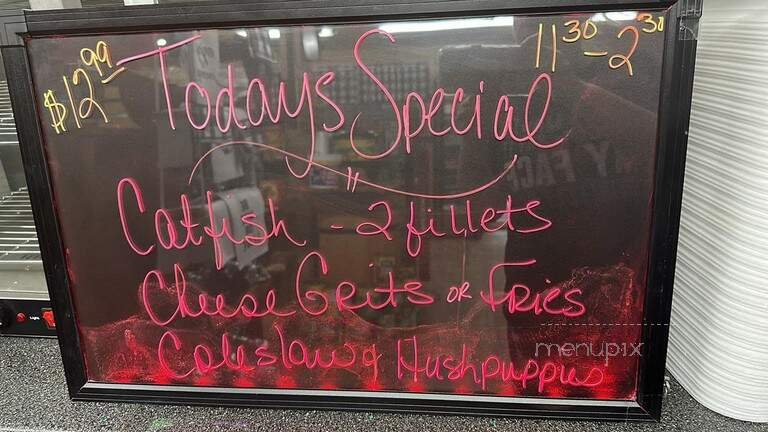 $12.99
Todays Special
11:30 - 2:30
Catfish - 2 fillets
Cheese Grits or Fries
Coleslaw & Hushpuppies
menupix